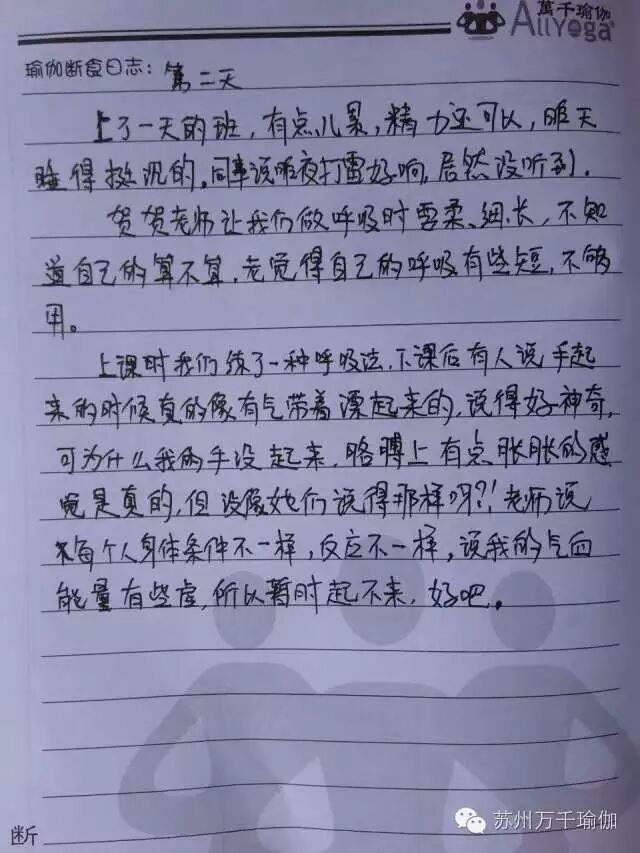 萬千瑜伽
AllYoga®
瑜伽断食日志：第二天
上了一天的班，有点儿累，精力还可以，昨天
睡得挺沉的。同事说昨夜打雷好响，居然没听到。
贺贺老师让我们做呼吸时要柔、细、长，不知
道自己的算不算，老觉得自己的呼吸有些短，不够
用。
上课时我们练了一种呼吸法，下课后有人说手起
来的时候真的像有气带着漂起来的，说得好神奇，
可为什么我的手没起来，胳膊上有点胀胀的感
觉是真的，但没像她们说得那样呀？！老师说
每个人身体条件不一样，反应不一样，说我的气血
能量有些虚，所以暂时起不来，好吧。
断
苏州万千瑜伽